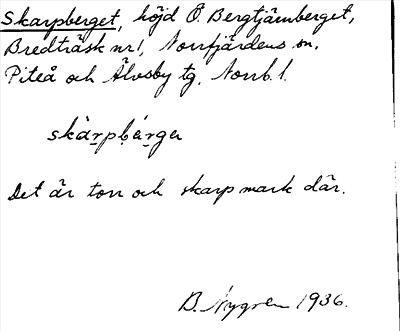 Skarpberget, höjd Ö. Bergtjärnberget,
Bredträsk nr 1, Norrfjärdens sn.
Piteå och Älvsby tg. Norrb. l.
skàrpbǽrgə
Det är torr och skarp mark där.
B. Nygren 1936.